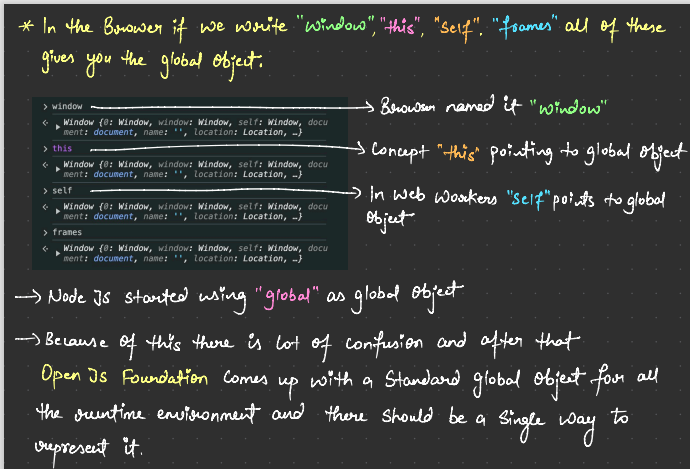 * In the Browser if we write "window", "this", "self", "frames" all of these
gives you the global object.
> window
Window {0: Window, window: Window, self: Window, docu
ment: document, name: '', location: Location, …}
> this
Window {0: Window, window: Window, self: Window, docu
ment: document, name: '', location: Location, …}
> self
Window {0: Window, window: Window, self: Window, docu
ment: document, name: '', location: Location, …}
> frames
Window {0: Window, window: Window, self: Window, docu
ment: document, name: '', location: Location, …}
→ Browser named it "window"
→ Concept "this" pointing to global object
→ In web workers "self" points to global
object
→ Node Js started using "global" as global object
→ Because of this there is lot of confusion and after that
Open Js Foundation comes up with a Standard global object for all
the runtime environment and there should be a single way to
represent it.